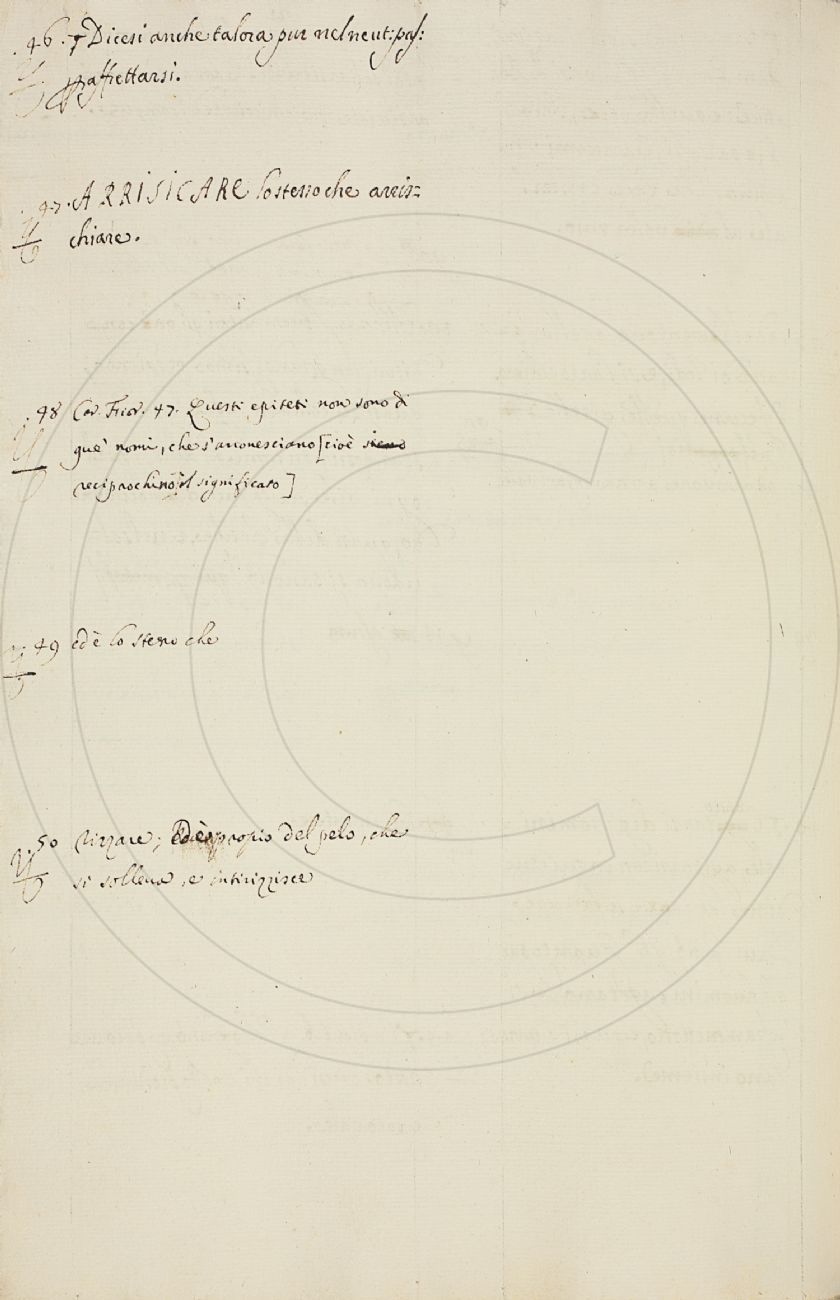 46. † Dicesi anche talora pur nel neut: pas:
p affrettarsi.
47. ARRISICARE lo stesso che arris=
chiare.
48 Cor. Fior. 47. Questi epiteti non sono di
que' nomi, che s'arrovesciano [cioè sieno
reciprochino il significato]
49 ed è lo stesso che
50 rizzare; Ed è proprio del pelo, che
si solleva, e intirizzisce